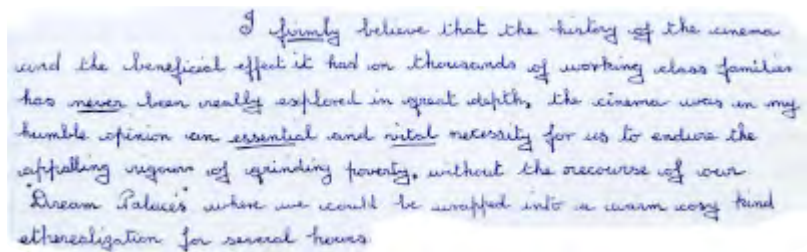 I firmly believe that the history of the cinema
and the beneficial effect it had on thousands of working class families
has never been really explored in great depth, the cinema was in my
humble opinion an essential and vital necessity for us to endure the
appalling rigours of grinding poverty, without the recourse of our
"Dream Palaces" where we could be wrapped into a warm cosy kind
etherealization for several hours